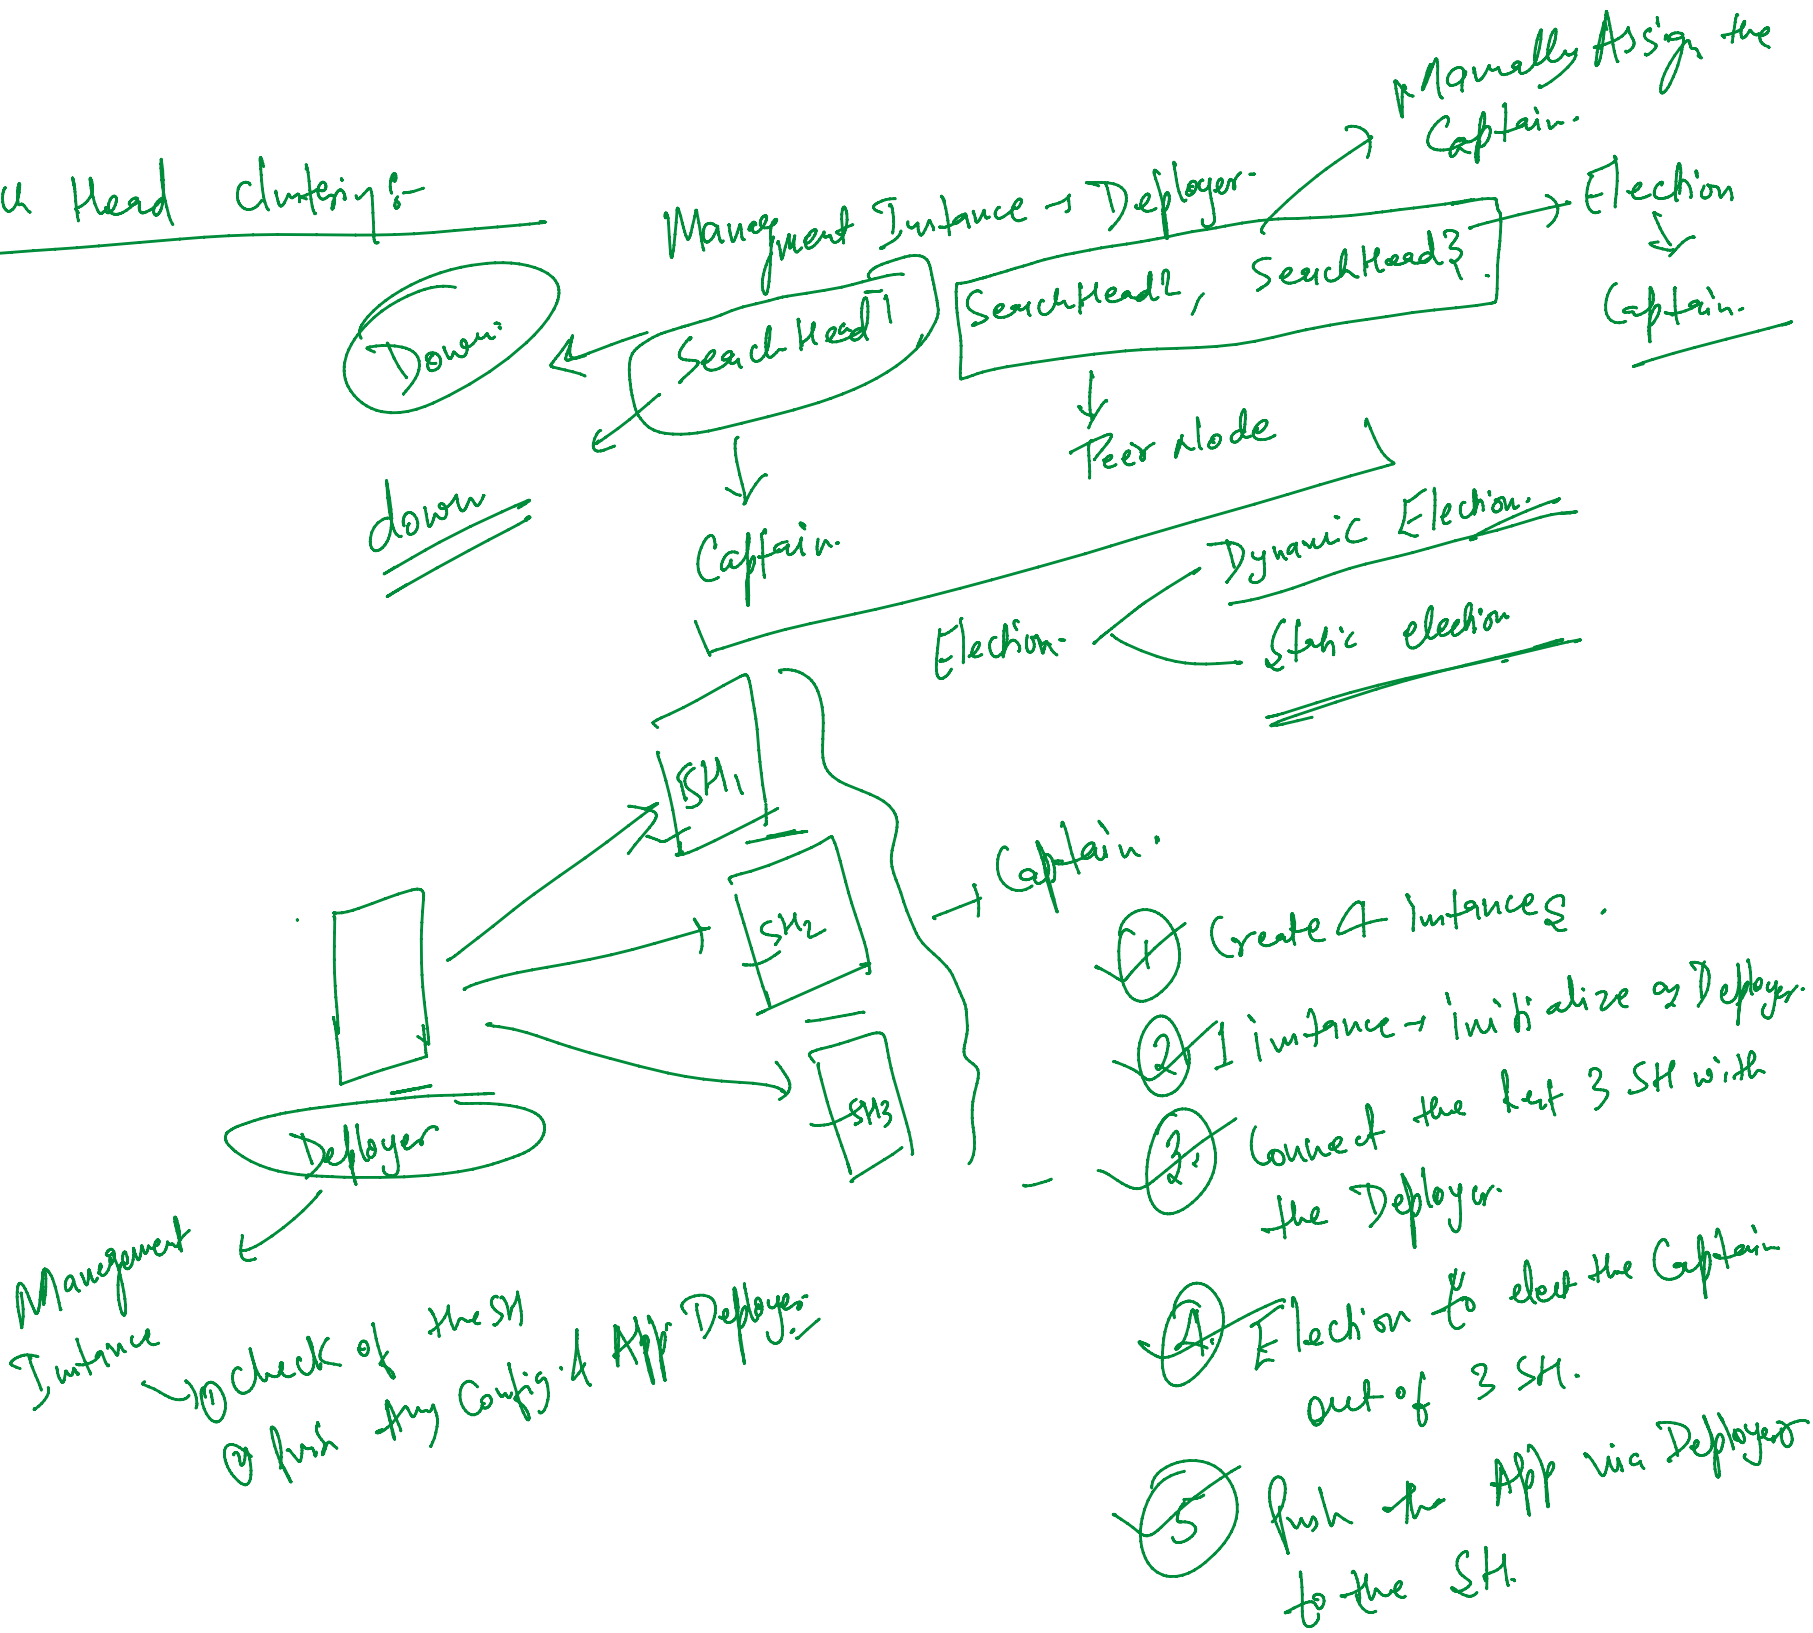 ch Head Clustering:-
Managment Instance → Deployer.
Manually Assign the
Captain.
Election
Captain.
SearchHead1
SearchHead2, SearchHead3.
Down.
down
Captain.
Peer Node
Election.
Dynamic Election.
Static election
SH1
SH2
SH3
Captain.
Deployer
Management
Instance
① check of the SH
② Push Any Config & App Deployer.
1 Create 4 instances.
2 1 instance → initialize as Deployer.
3. Connect the Rest 3 SH with
the Deployer.
4. Election to elect the Captain
out of 3 SH.
5 Push the App via Deployer
to the SH.